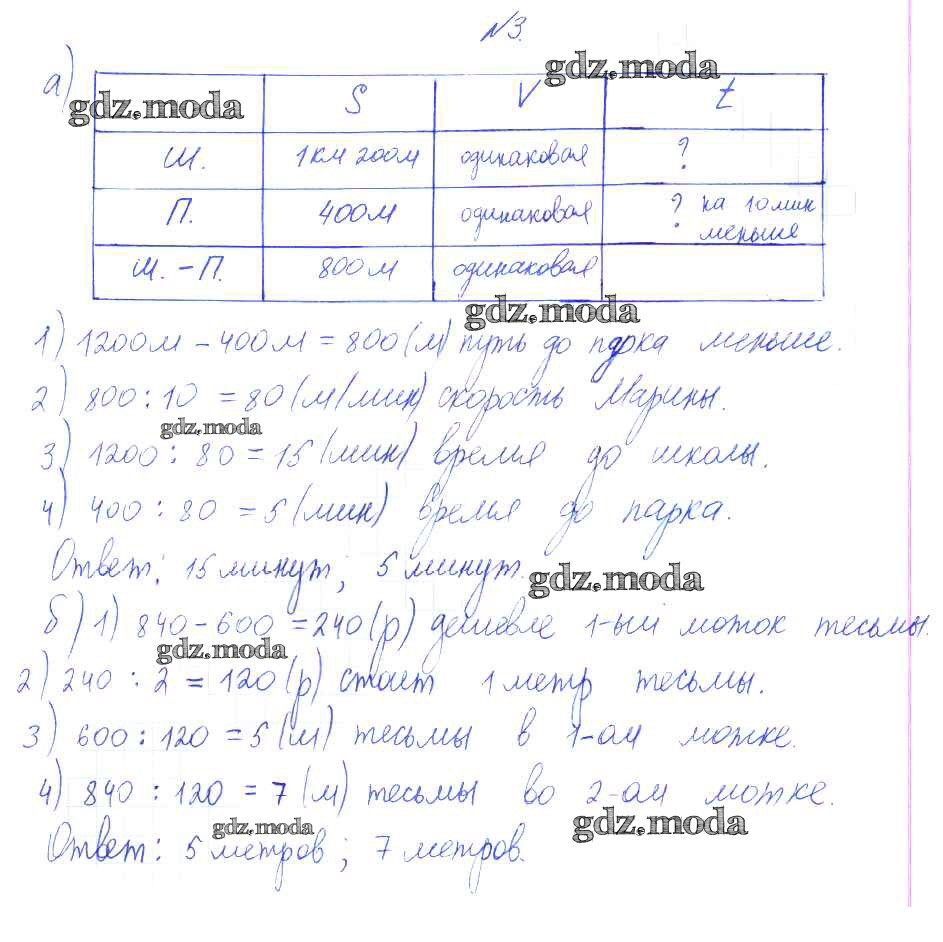 №3.
а)
S V t
Ш. 1км 200м одинаковая ?
П. 400м одинаковая ? на 10 мин меньше
Ш. – П. 800м одинаковая
1) 1200м – 400м = 800 (м) путь до парка меньше.
2) 800 : 10 = 80 (м/мин) скорость Марины.
3) 1200 : 80 = 15 (мин) время до школы.
4) 400 : 80 = 5 (мин) время до парка.
Ответ: 15 минут; 5 минут.
б) 1) 840 – 600 = 240 (р) дешевле 1-ый моток тесьмы.
2) 240 : 2 = 120 (р) стоит 1 метр тесьмы.
3) 600 : 120 = 5 (м) тесьмы в 1-ом мотке.
4) 840 : 120 = 7 (м) тесьмы во 2-ом мотке.
Ответ: 5 метров; 7 метров.
gdz.moda
gdz.moda
gdz.moda
gdz.moda
gdz.moda
gdz.moda
gdz.moda
gdz.moda